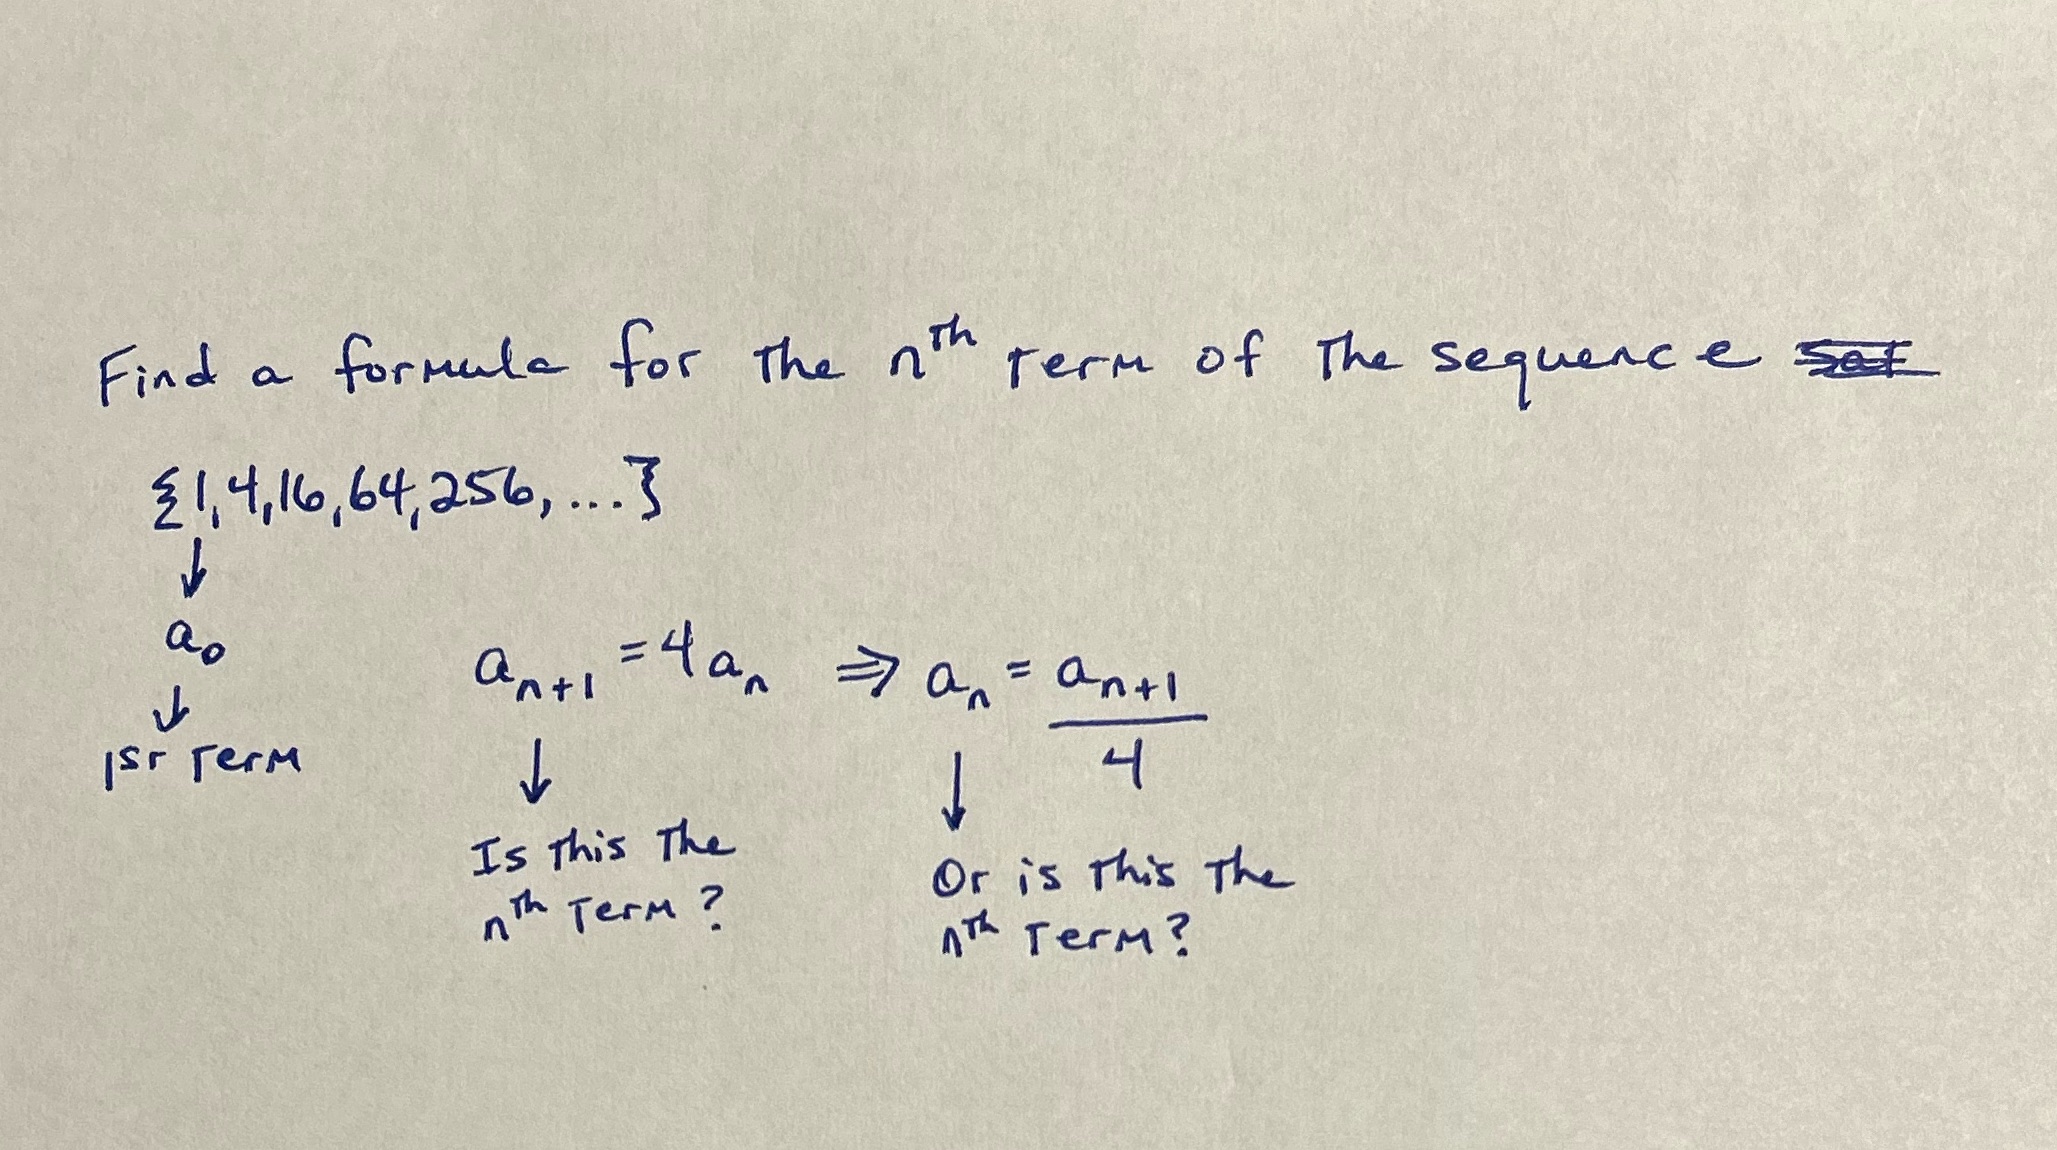 Find a formula for the nᵗʰ term of the sequence
{1,4,16,64,256,...}
↓
a₀
↓
1st term
aₙ₊₁ = 4aₙ ⇒ aₙ = aₙ₊₁/4
↓ ↓
Is this the
nᵗʰ term?
Or is this the
nᵗʰ term?